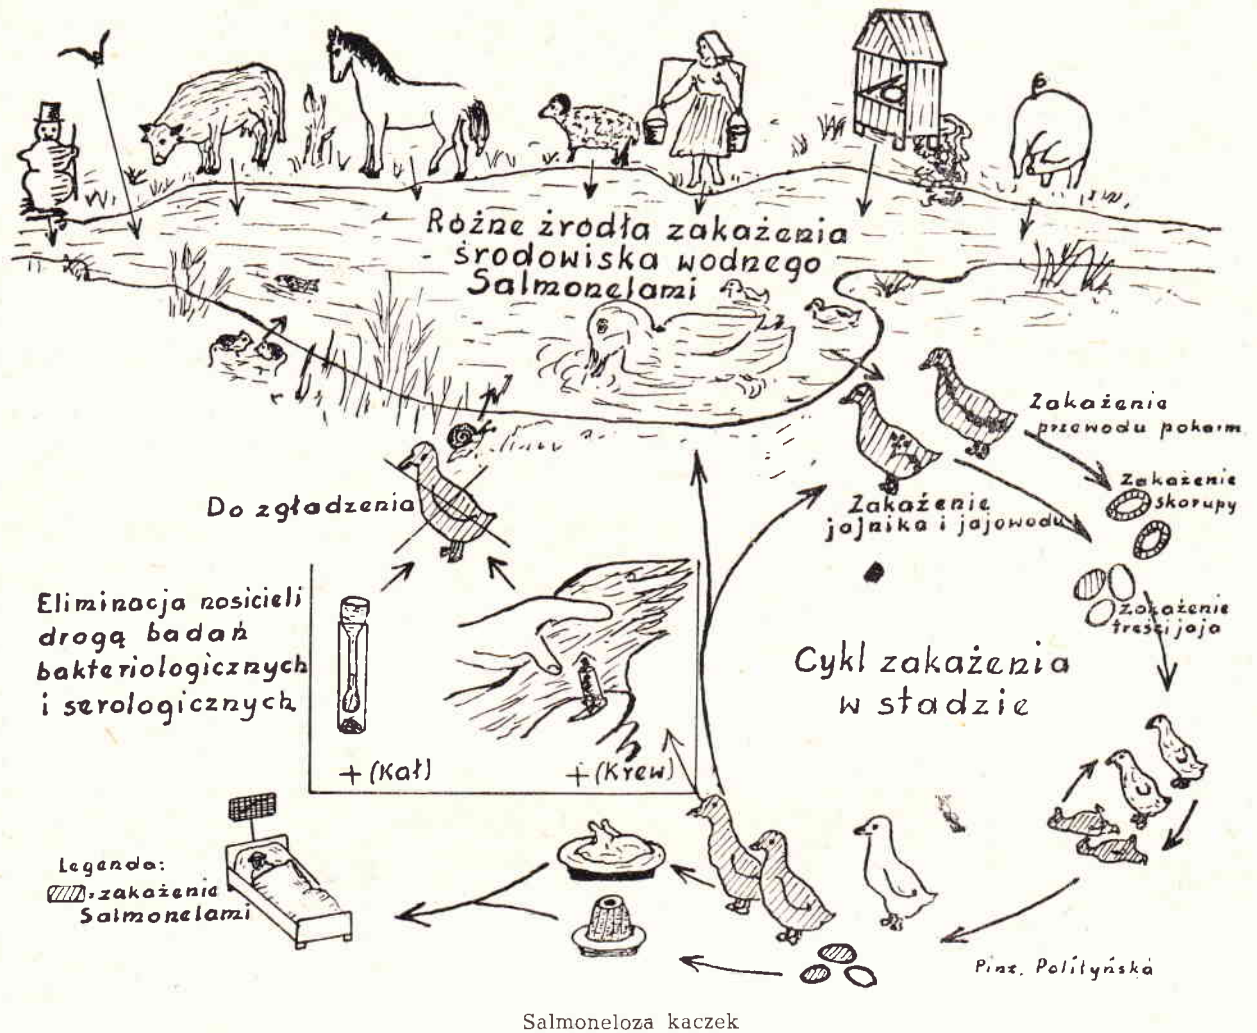 Różne żródła zakażenia
środowiska wodnego
Salmonelami
Zakażenie
przewodu pokarm.
Zakażenie
skorupy
Zakażenie
jajnika i jajowodu
Zakażenie
treści jaja
Do zgładzenia
Eliminacja nosicieli
drogą badań
bakteriologicznych
i serologicznych
+ (Kał)
+ (Krew)
Cykl zakażenia
w stadzie
Legenda:
= zakażenie
Salmonelami
Pinx. Polityńska
Salmoneloza kaczek